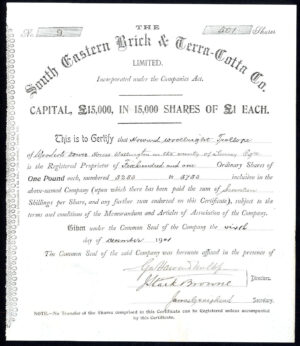 THE
No. 9 501 Shares
South Eastern Brick & Terra-Cotta Co.
LIMITED.
Incorporated under the Companies Act.
CAPITAL, £15,000, IN 15,000 SHARES OF £1 EACH.
This is to Certify that Howard
of House Wallington in the county of Surrey
is the Registered Proprietor of and one Ordinary Shares of
One Pound each, numbered 3283 to 3783 inclusive in the
above-named Company (upon which there has been paid the sum of
Shillings per Share, and any further sum endorsed on this Certificate), subject to the
terms and conditions of the Memorandum and Articles of Association of the Company.
Given under the Common Seal of the Company the sixth
day of December 1901
The Common Seal of the said Company was hereunto affixed in the presence of
J Stark Browne
Directors.
Secretary.
NOTE.—No Transfer of the Shares comprised in this Certificate can be Registered unless accompanied
by this Certificate.